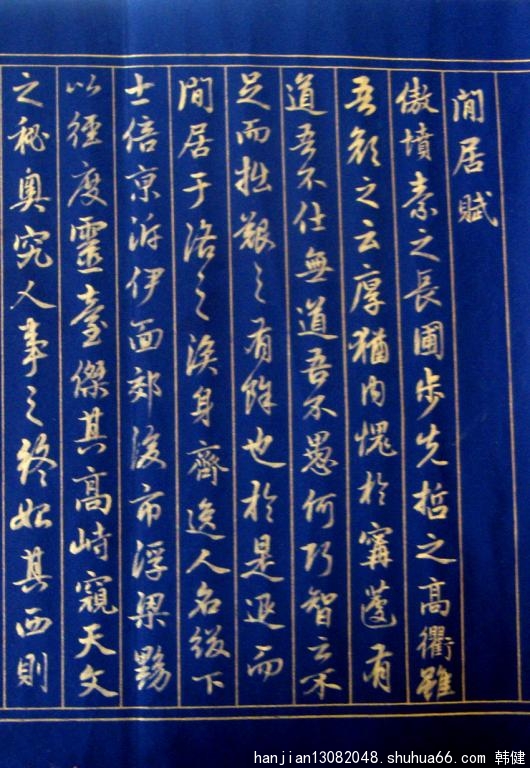 閒居賦
傲墳素之長圃步先哲之高衢雖
吾顏之云厚猶內愧於寗蘧有
道吾不仕無道吾不愚何巧智之不
足而拙艱之有餘也於是退而
閒居于洛之涘身齊逸人名綴下
士倍京泝伊面郊後市浮梁黝
以徑度靈臺傑其高峙窺天文
之秘奧究人事之終始其西則
hanjian13082048.shuhua66.com 韩健